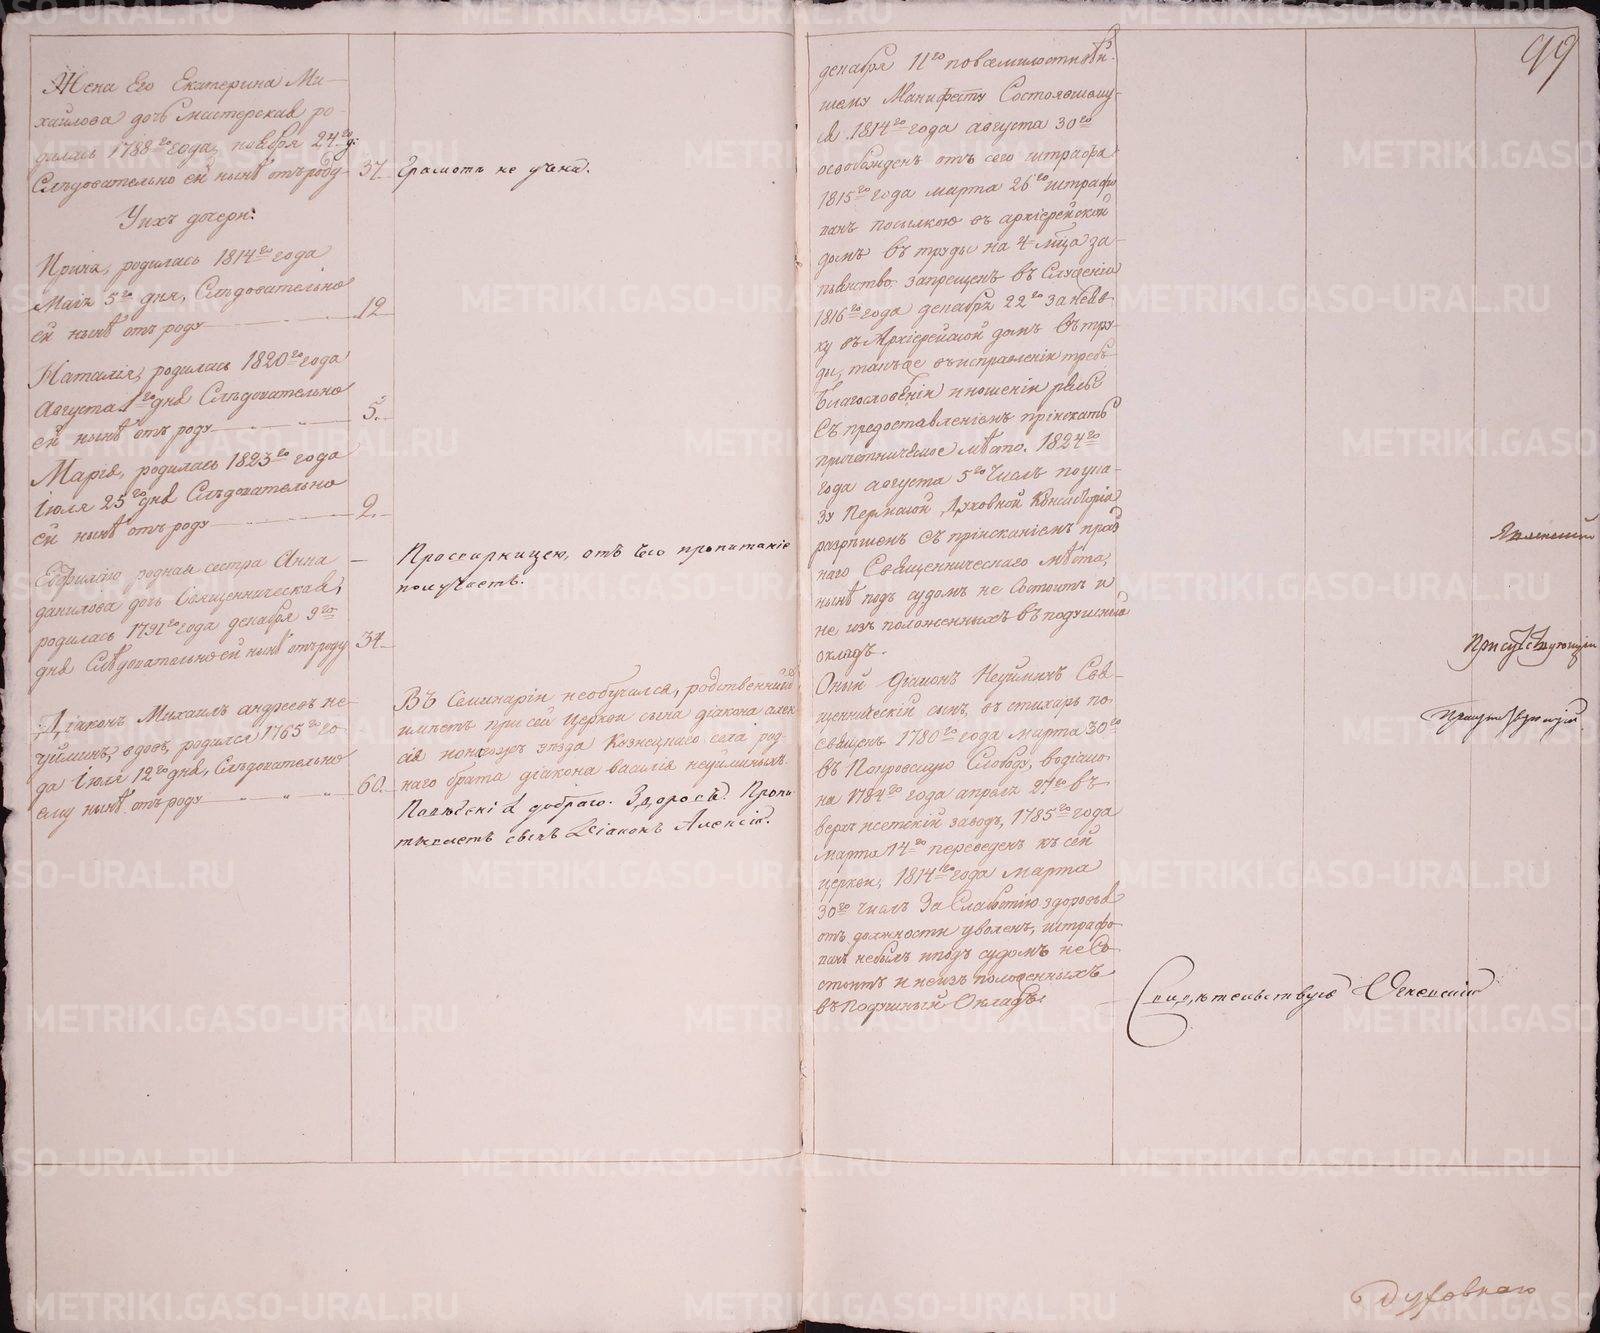 Жена Его Екатерина Ми-
хаилова дочь Мастерская ро-
дилась 1788го года, ноября 24го д:
Слѣдовательно ей нынѣ отъ роду 37.
Грамотѣ не учена.
У ихъ дочери:
Ирина, родилась 1814го года
Маiя 5го дня, Слѣдовательно
ей нынѣ отъ роду 12
Наталiя, родилась 1820го года
Августа 1го дня Слѣдовательно
ей нынѣ отъ роду 5.
Марiя, родилась 1823го года
Iюля 25го дня Слѣдовательно
ей нынѣ отъ роду 2.
родная сестра Анна
данилова дочь Священническая,
родилась 1791го года декабря 9го
дня Слѣдовательно ей нынѣ отъ роду 34.
Просвирницею, отъ Его пропитанiе
получаетъ.
Дiаконъ Михаилъ андреевъ не-
уйминъ, вдовъ, родился 1765го го-
да Iюля 12го дня, Слѣдовательно
ему нынѣ отъ роду 60.
Въ Семинарiи необучался, родственниковъ
имѣетъ при сей церкви сына дiакона алек
сiя уѣзда Кознецкаго села род-
наго брата дiакона василiя неуйминыхъ.
Поведенiя добраго. Здоровъ. Пропи
тываетъ сынъ Дiаконъ Алексiй.
99
декабря 11го повсемилостивѣй-
шему Манифесту Состоявшему-
ся 1814го года августа 30го
освобожденъ отъ сего штрафа
1815го года марта 26го штрафо
ванъ посылкою въ архiерейской
домъ въ труды на 4 мца за
пьянство, запрещенъ въ Служенiи
1816го года декабря 22го
въ Архiерейской домъ въ тру-
ды, такъ же въ исправленiи требъ
Благословенiи и ношенiи рясы
Съ предоставленiемъ прiискать
причетническое мѣсто. 1824го
года августа 5го Числа по ука-
зу Пермской Духовной Консисторiи
разрѣшенъ съ прiисканiемъ празд
наго Священническаго мѣста,
нынѣ подъ судомъ не Состоитъ и
не изъ положенныхъ въ подушный
окладъ.
Оный дiаконъ Неуйминъ Свя-
щенническiй сынъ, въ стихарь по-
священъ 1780го года марта 30го
въ Покровскую Слободу, во дiако-
на 1784го года апреля 27го въ
верхъ исетскiй заводъ, 1785го года
марта 14го переведенъ къ сей
церкви, 1814го года марта
30го числа За Слабостiю здоровья
отъ должности уволенъ, штрафо
ванъ небылъ и подъ судомъ не Со-
стоитъ и неизъ положенныхъ
въ Подушный Окладъ
Присутствующiй
Присутствующiй
Свидѣтельствую
Духовнаго